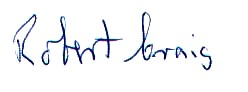 Robert Craig